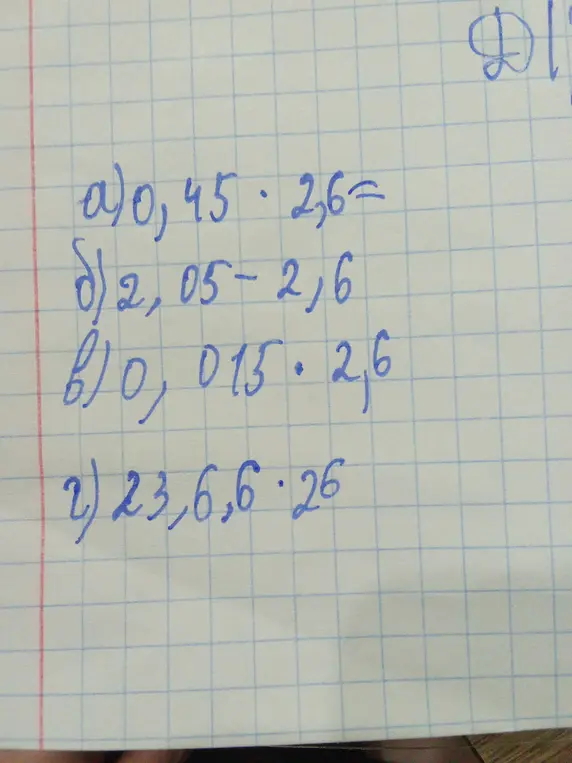 а) 0,45 · 2,6 =
б) 2,05 - 2,6
в) 0,015 · 2,6
г) 23,6,6 · 26